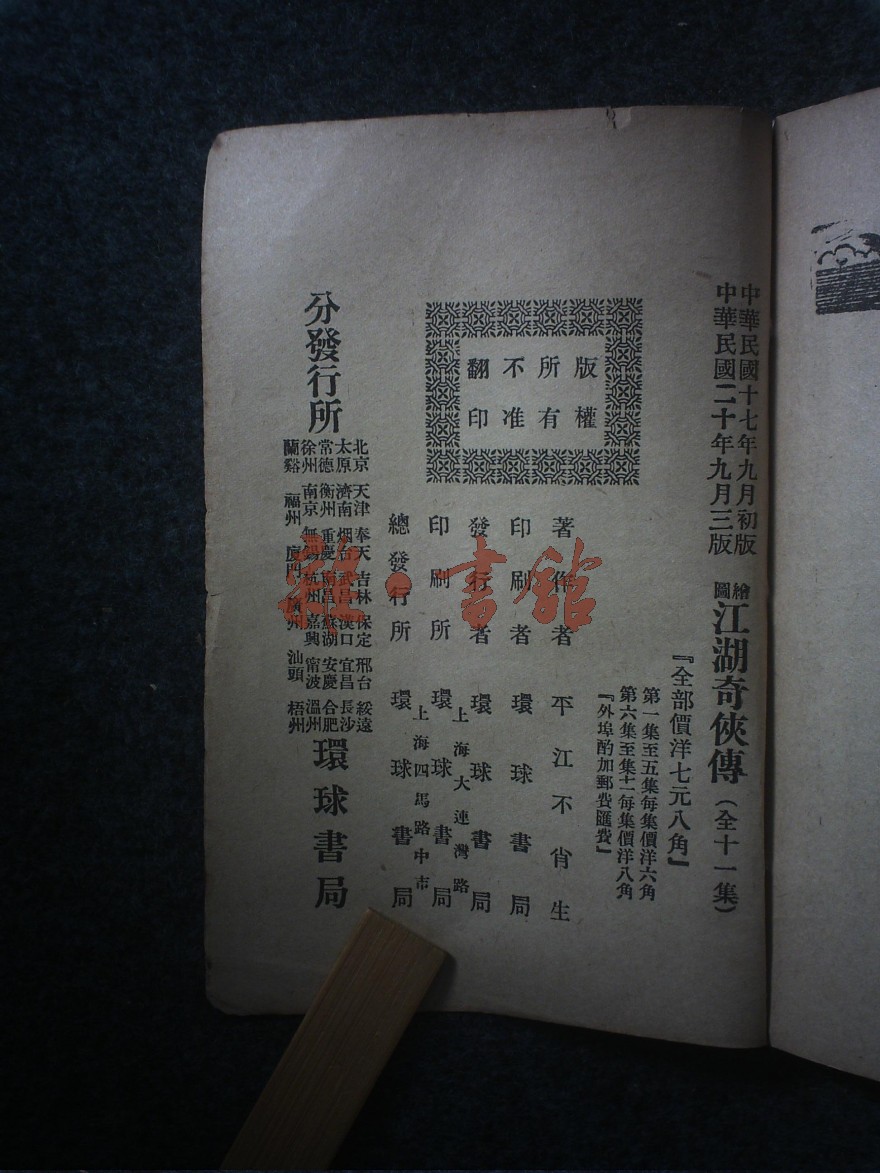 中華民國十七年九月初版
中華民國二十年九月三版
繪圖江湖奇俠傳（全十一集）
『全部價洋七元八角』
第一集至五集每集價洋六角
第六集至集十一每集價洋八角
『外埠酌加郵費匯費』
版權
所有
不准
翻印
著作者 平江不肖生
印刷者 環球書局
發行者 環球書局
上海大連灣路
印刷所 環球書局
上海四馬路中市
總發行所 環球書局
分發行所
北京 天津 奉天 吉林 保定 邢台 綏遠
太原 濟南 烟台 武昌 漢口 宜昌 長沙
常德 衡州 重慶 南昌 蘇湖 安慶 合肥
徐州 南京 無錫 杭州 嘉興 甯波 溫州
蘭谿 福州 廈門 廣州 汕頭 梧州
環球書局
雜·書館